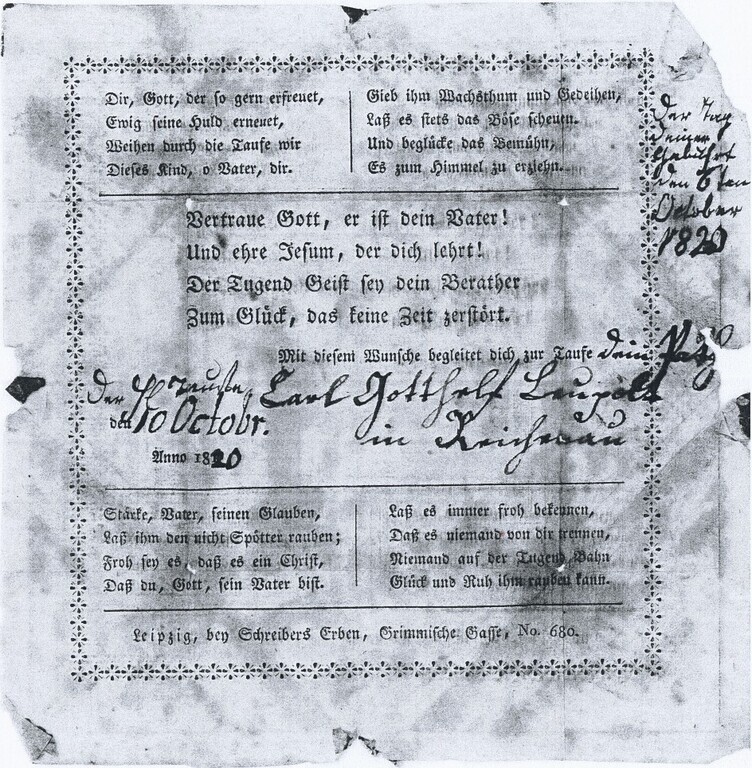 Dir, Gott, der so gern erfreuet,
Ewig seine Huld erneuet,
Weihen durch die Taufe wir
Dieses Kind, o Vater, dir.
Gieb ihm Wachsthum und Gedeihen,
Laß es stets das Böse scheuen.
Und beglücke das Bemühn,
Es zum Himmel zu erziehn.
Der Tag
deiner
Geburth
den 6ten
October
1820
Vertraue Gott, er ist dein Vater!
Und ehre Jesum, der dich lehrt!
Der Tugend Geist sey dein Berather
Zum Glück, das keine Zeit zerstört.
Mit diesem Wunsche begleitet dich zur Taufe dein
Der
Carl Gotthelf Leupolt
den 10 Octobr.
in Reichenau
Anno 1820
Stärke, Vater, seinen Glauben,
Laß ihm den nicht Spötter rauben;
Froh sey es, daß es ein Christ,
Daß du, Gott, sein Vater bist.
Laß es immer froh bekennen,
Daß es niemand von dir trennen,
Niemand auf der Tugend Bahn
Glück und Ruh ihm rauben kann.
Leipzig, bey Schreibers Erben, Grimmische Gasse, No. 680.